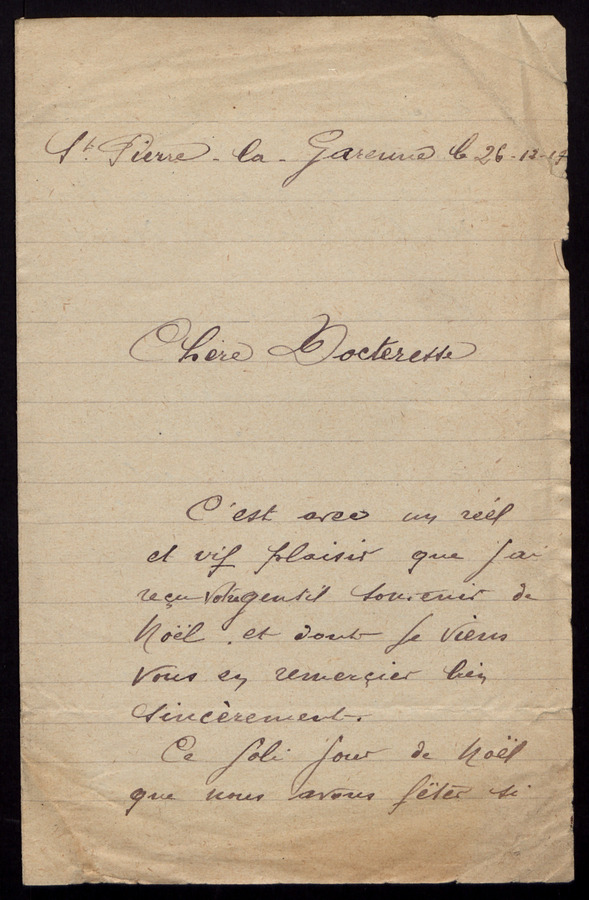 St. Pierre-la-Garenne le 26-12-17
Chère Docteresse
C'est avec un réel
et vif plaisir que j'ai
reçu votre gentil souvenir de
Noël. et dont je viens
vous en remerçier bien
sincèrement.
Ce joli jour de Noël
que nous avons fêter si